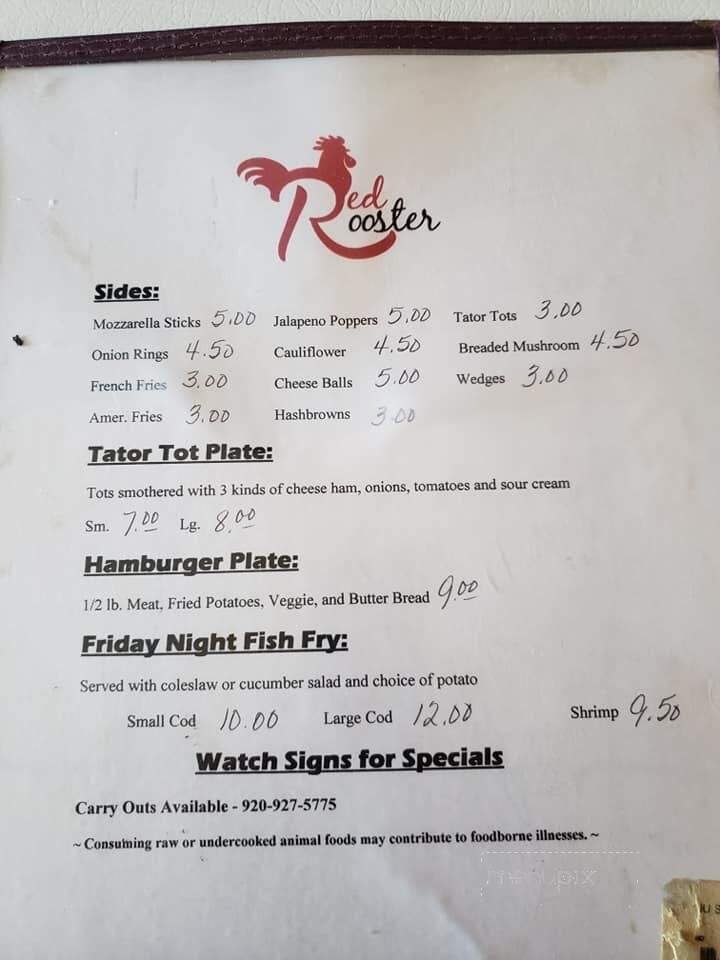 Red
Rooster
Sides:
Mozzarella Sticks 5.00 Jalapeno Poppers 5.00 Tator Tots 3.00
Onion Rings 4.50 Cauliflower 4.50 Breaded Mushroom 4.50
French Fries 3.00 Cheese Balls 5.00 Wedges 3.00
Amer. Fries 3.00 Hashbrowns 3.00
Tator Tot Plate:
Tots smothered with 3 kinds of cheese ham, onions, tomatoes and sour cream
Sm. 7.00 Lg. 8.00
Hamburger Plate:
1/2 lb. Meat, Fried Potatoes, Veggie, and Butter Bread 9.00
Friday Night Fish Fry:
Served with coleslaw or cucumber salad and choice of potato
Small Cod 10.00 Large Cod 12.00 Shrimp 9.50
Watch Signs for Specials
Carry Outs Available - 920-927-5775
~ Consuming raw or undercooked animal foods may contribute to foodborne illnesses. ~